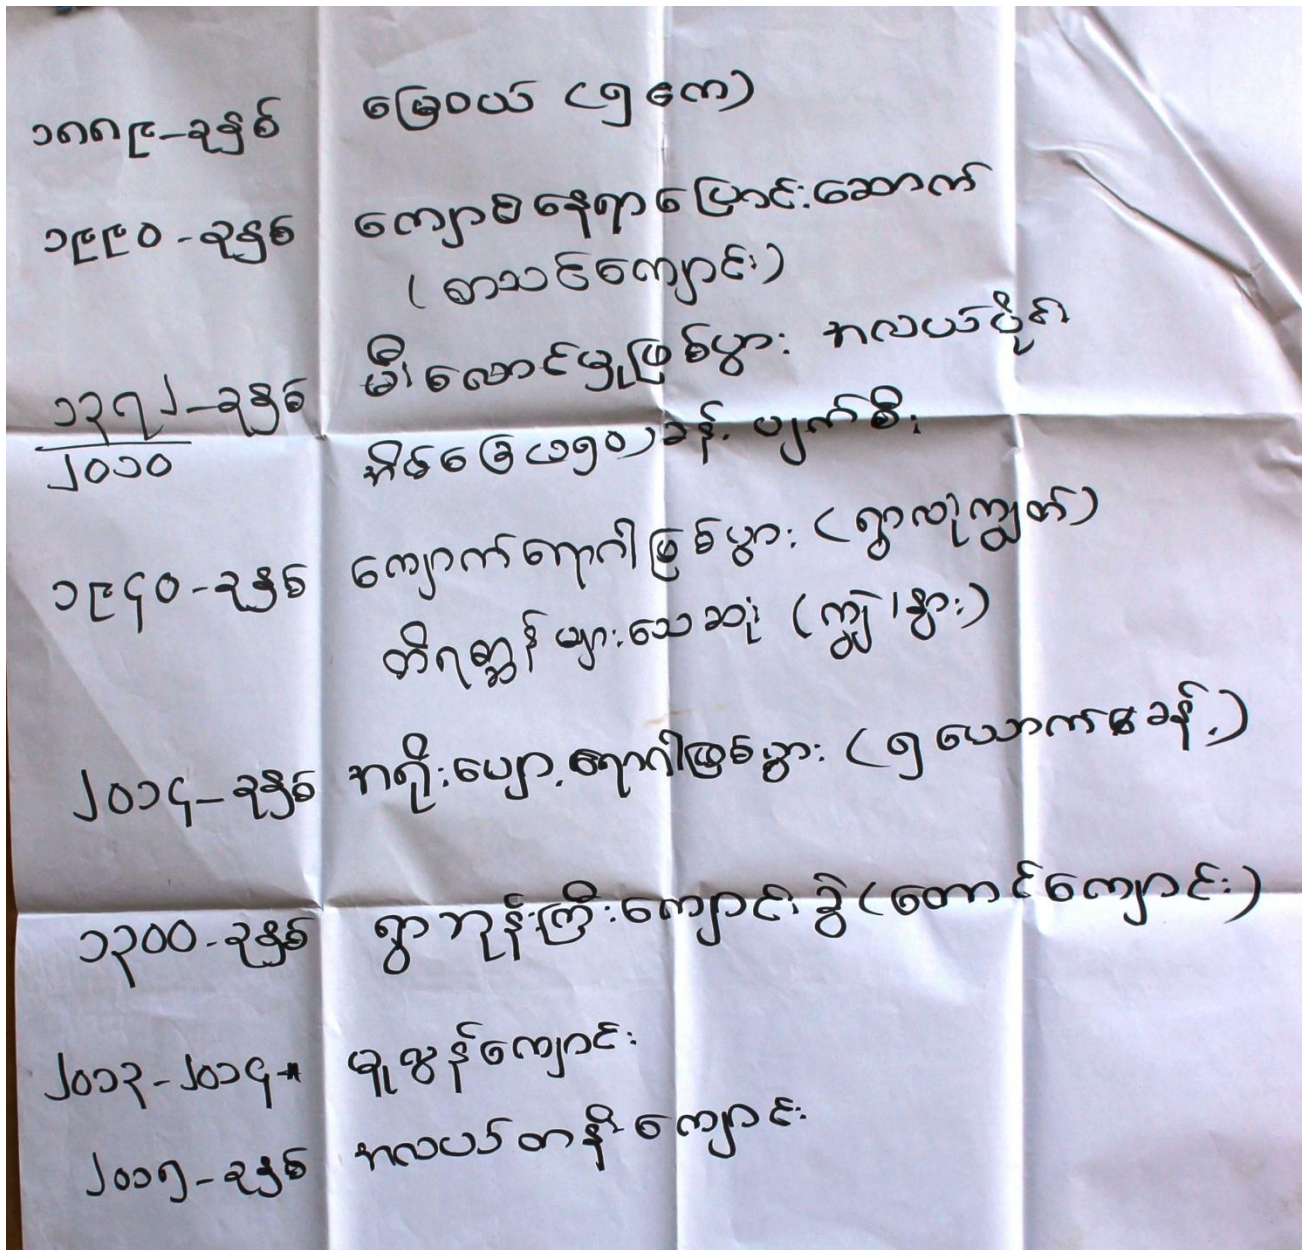 ၁၈၈၉-ခုနှစ် မြေဝယ် (၅ ဧက)
၁၉၉၀-ခုနှစ် ကျောင်းနေရာပြောင်းဆောက်
(စာသင်ကျောင်း)
၁၃၇၂-ခုနှစ် မီးလောင်မှုဖြစ်ပွား အလယ်ပိုင်း
၂၀၁၀ အိမ်ခြေ (၁၅၀) ခန့် ပျက်စီး
၁၉၄၀-ခုနှစ် ကျောက်ရောဂါဖြစ်ပွား (ရွာလုံးကျွတ်)
တိရစ္ဆာန်များသေဆုံး (ကျွဲ၊နွား)
၂၀၁၄-ခုနှစ် အရိုးပျော့ရောဂါဖြစ်ပွား (၅ ယောက်ခန့်)
၁၃၀၀-ခုနှစ် ရွာဘုန်းကြီးကျောင်းခွဲ (တောင်ကျောင်း)
၂၀၁၃-၂၀၁၄- မူလွန်ကျောင်း
၂၀၁၅-ခုနှစ် အလယ်တန်းကျောင်း